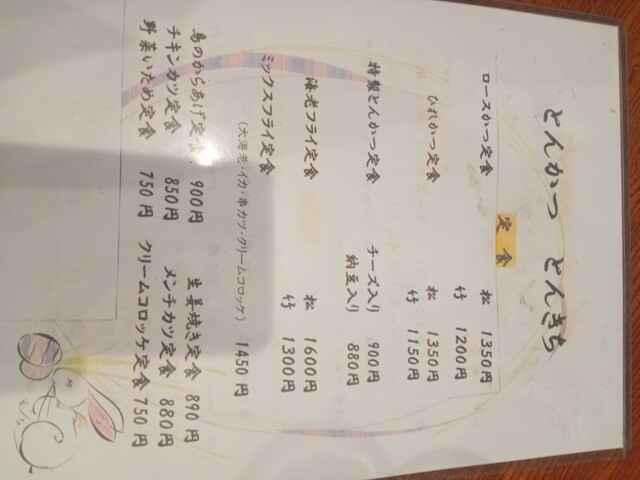 とんかつ とんきち
定食
ロースかつ定食 松 1350円
竹 1200円
ひれかつ定食 松 1350円
竹 1150円
特製とんかつ定食 チーズ入り 900円
納豆入り 880円
海老フライ定食 松 1600円
竹 1300円
ミックスフライ定食 1450円
(大海老・イカ・串カツ・クリームコロッケ)
鳥のからあげ定食 900円 生姜焼き定食 890円
チキンカツ定食 850円 メンチカツ定食 880円
野菜いため定食 750円 クリームコロッケ定食 750円